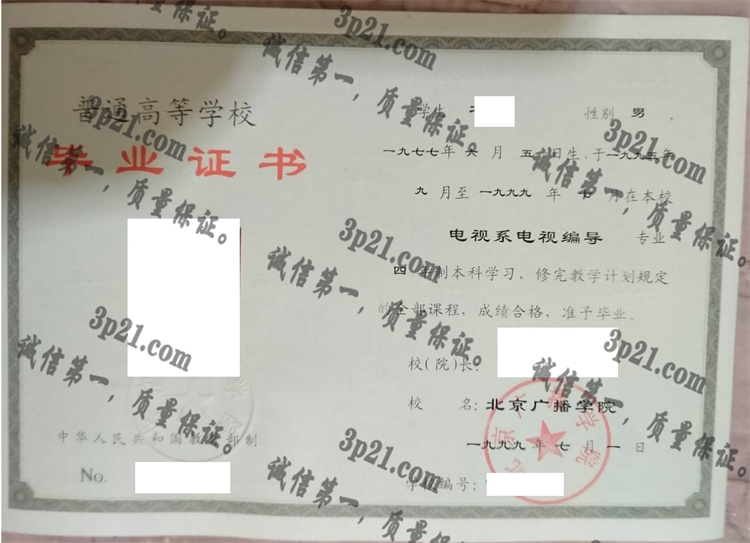 普通高等学校
毕业证书
中华人民共和国教育部制
No.
学生 性别 男,
一九七七年 六 月 五 日生、于一九九五年
九 月至 一九九九 年 七 月在本校
电视系电视编导 专业
四 年制本科学习,修完教学计划规定
的全部课程,成绩合格,准予毕业。
校(院)长:
校 名:北京广播学院
一九九九 年 七 月 一 日
学校编号:
3p21.com
诚信第一,质量保证。
3p21.com
诚信第一,质量保证。
3p21.com
诚信第一,质量保证。
3p21.com
诚信第一,质量保证。
3p21.com
诚信第一,质量保证。
3p21.com
诚信第一,质量保证。